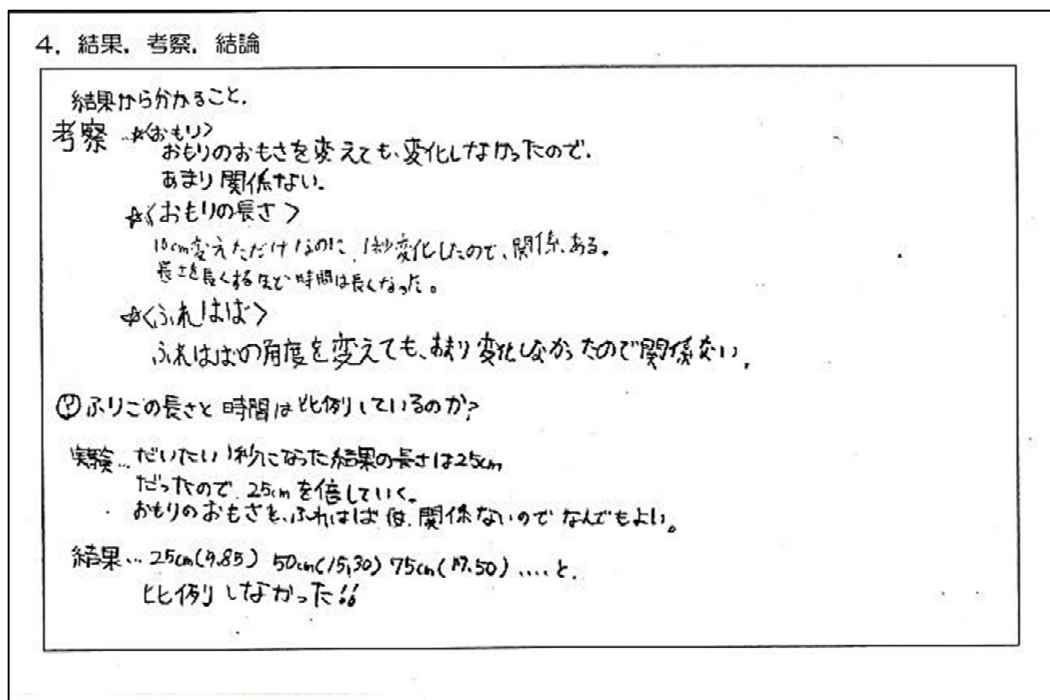 4. 結果，考察，結論
結果から分かること.
考察 …☆〈おもり〉
おもりのおもさを変えても、変化しなかったので.
あまり関係ない.
☆〈おもりの長さ〉
10cm変えただけなのに、1秒変化したので、関係、ある。
長さを長くするほど時間は長くなった。
☆〈ふれはば〉
ふれはばの角度を変えても、あまり変化しなかったので関係ない.
?ふりこの長さと時間は比例しているのか?
実験…だいたい1秒になった結果の長さは25cm
だったので、25cmを倍していく。
・おもりのおもさと、ふれはばは、関係ないのでなんでもよい。
結果… 25cm(9.85) 50cm(15,30) 75cm(17.50) ....と.
比例しなかった!!